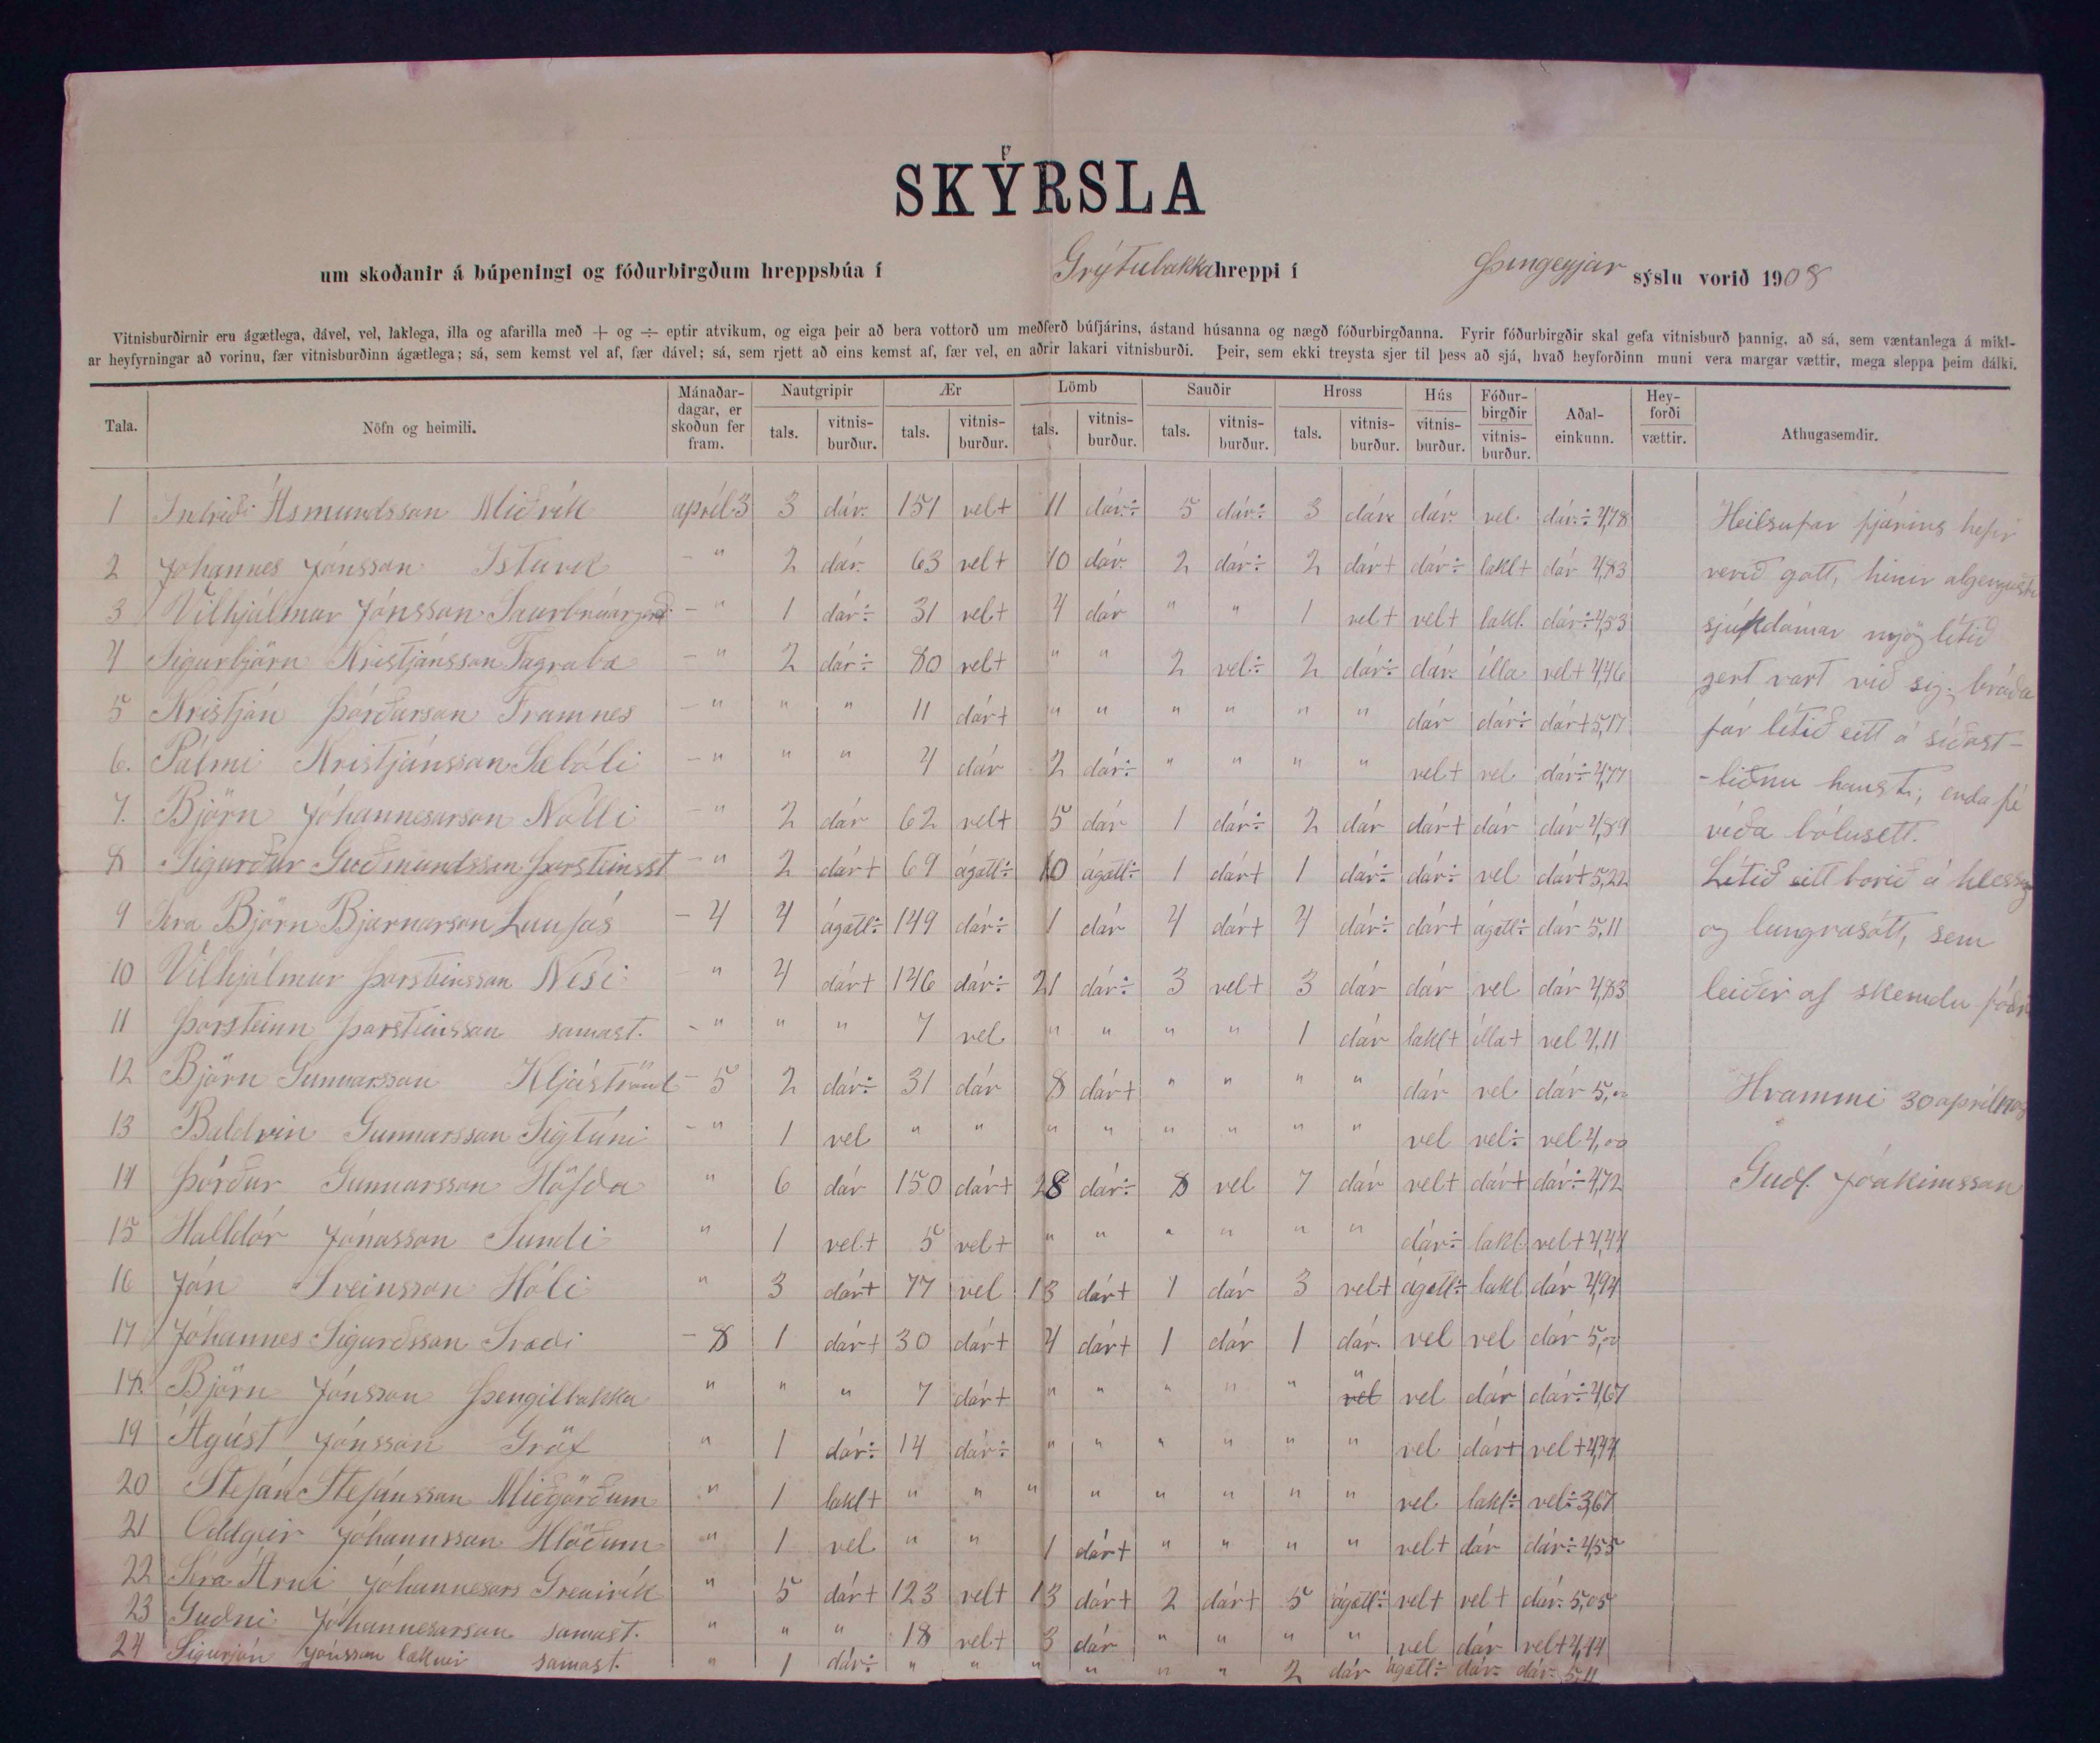 SKÝRSLA
um skoðanir á búpeningi og fóðurbirgðum hreppsbúa í Grýtubakkahreppi í Þingeyjar sýslu vorið 1908
Vitnisburðirnir eru ágætlega, dável, vel, laklega, illa og afarilla með + og ÷ eptir atvikum, og eiga þeir að bera vottorð um meðferð búfjárins, ástand húsanna og nægð fóðurbirgðanna. Fyrir fóðurbirgðir skal gefa vitnisburð þannig, að sá, sem væntanlega á mikl-
ar heyfyrningar að vorinu, fær vitnisburðinn ágætlega; sá, sem kemst vel af, fær dável; sá, sem rjett að eins kemst af, fær vel, en aðrir lakari vitnisburði. Þeir, sem ekki treysta sjer til þess að sjá, hvað heyforðinn muni vera margar vættir, mega sleppa þeim dálki.
Tala. Nöfn og heimili. Mánaðar-dagar, er skoðun fer fram. Nautgripir tals. vitnis-burður. Ær tals. vitnis-burður. Lömb tals. vitnis-burður. Sauðir tals. vitnis-burður. Hross tals. vitnis-burður. Hús vitnis-burður. Fóður-birgðir vitnis-burður. Aðal-einkunn. Hey-forði vættir. Athugasemdir.
1 Indriði Ásmundsson Miðvík apríl 3 3 dáv. 151 vel+ 11 dáv÷ 5 dáv÷ 3 dáv. dáv. vel dáv.÷ 4,78
2 Jóhannes Jónsson Ystuvík - " 2 dáv. 63 vel+ 10 dáv. 2 dáv÷ 2 dáv+ dáv÷ lakl+ dáv 4,83
3 Vilhjálmur Jónsson Saurbrúargerð - " 1 dáv÷ 31 vel+ 4 dáv " " 1 vel+ vel+ lakl. dáv÷ 4,53
4 Sigurbjörn Kristjánsson Fagrabæ - " 2 dáv÷ 80 vel+ " " 2 vel÷ 2 dáv÷ dáv. illa vel+ 4,46
5 Kristján Þórðarson Framnes - " " " 11 dáv+ " " " " " " dáv dáv÷ dáv+ 5,17
6. Pálmi Kristjánsson Sæbóli - " " " 4 dáv 2 dáv÷ " " " " vel+ vel dáv÷ 4,77
7. Björn Jóhannesarson Nolli - " 2 dáv 62 vel+ 5 dáv 1 dáv÷ 2 dáv dáv+ dáv dáv 4,89
8 Sigurður Guðmundsson Þorsteinsst - " 2 dáv+ 69 ágætl÷ 10 ágætl÷ 1 dáv+ 1 dáv÷ dáv÷ vel dáv+ 5,22
9 Sera Björn Bjarnarson Laufás - 4 4 ágætl÷ 149 dáv÷ 1 dáv 4 dáv+ 4 dáv÷ dáv+ ágætl÷ dáv 5,11
10 Vilhjálmur Þorsteinsson Nesi " 4 dáv+ 146 dáv÷ 21 dáv÷ 3 vel+ 3 dáv dáv vel dáv 4,83
11 Þorsteinn Þorsteinsson samast. - " " " 7 vel " " " " 1 dáv lakl+ illa+ vel 4,11
12 Björn Gunnarsson Kljáströnd - 5 2 dáv÷ 31 dáv 8 dáv+ " " " " dáv vel dáv 5,00
13 Baldvin Gunnarsson Sigtúni - " 1 vel " " " " " " " " vel vel÷ vel 4,00
14 Þórður Gunnarsson Höfða " 6 dáv 150 dáv+ 28 dáv÷ 8 vel 7 dáv vel+ dáv+ dáv÷ 4,72
15 Halldór Jónasson Sundi " 1 vel+ 5 vel+ " " " " " " dáv÷ lakl. vel+ 4,44
16 Jón Sveinsson Hóli " 3 dáv+ 77 vel 13 dáv+ 1 dáv 3 vel+ ágætl÷ lakl dáv 4,94
17 Jóhannes Sigurðsson Svæði - 8 1 dáv+ 30 dáv+ 4 dáv+ 1 dáv 1 dáv. vel vel dáv 5,00
18. Björn Jónsson Þengilbakka " " " 7 dáv+ " " " " " " vel vel dáv dáv÷ 4,67
19 Ágúst Jónsson Gröf " 1 dáv÷ 14 dáv÷ " " " " " " vel dáv+ vel+ 4,44
20 Stefán Stefánsson Miðgörðum " 1 lakl+ " " " " " " " " vel lakl÷ vel÷ 3,67
21 Oddgeir Jóhannsson Hlöðum " 1 vel " " 1 dáv+ " " " " vel+ dáv dáv÷ 4,55
22 Séra Árni Jóhannesars Grenivík " 5 dáv+ 123 vel+ 13 dáv+ 2 dáv+ 5 ágætl÷ vel+ vel+ dáv. 5,05
23 Guðni Jóhannesarson samast. " " " 18 vel+ 3 dáv " " " " vel dáv vel+ 4,44
24 Sigurjón Jónsson læknir samast. " 1 dáv÷ " " " " " " 2 dáv ágætl÷ dáv÷ dáv. 5,11
Heilsufar fjárins hefir
verið gott, hinir algengustu
sjúkdómar mjög lítið
gert vart við sig; bráða
fár lítið eitt á síðast-
-liðnu hausti, enda fé
víða bólusett.
Lítið eitt borið á
og lungnasótt, sem
leiðir af skemdu fóðri
Hvammi 30 apríl 1908
Guðl. Jóakimsson